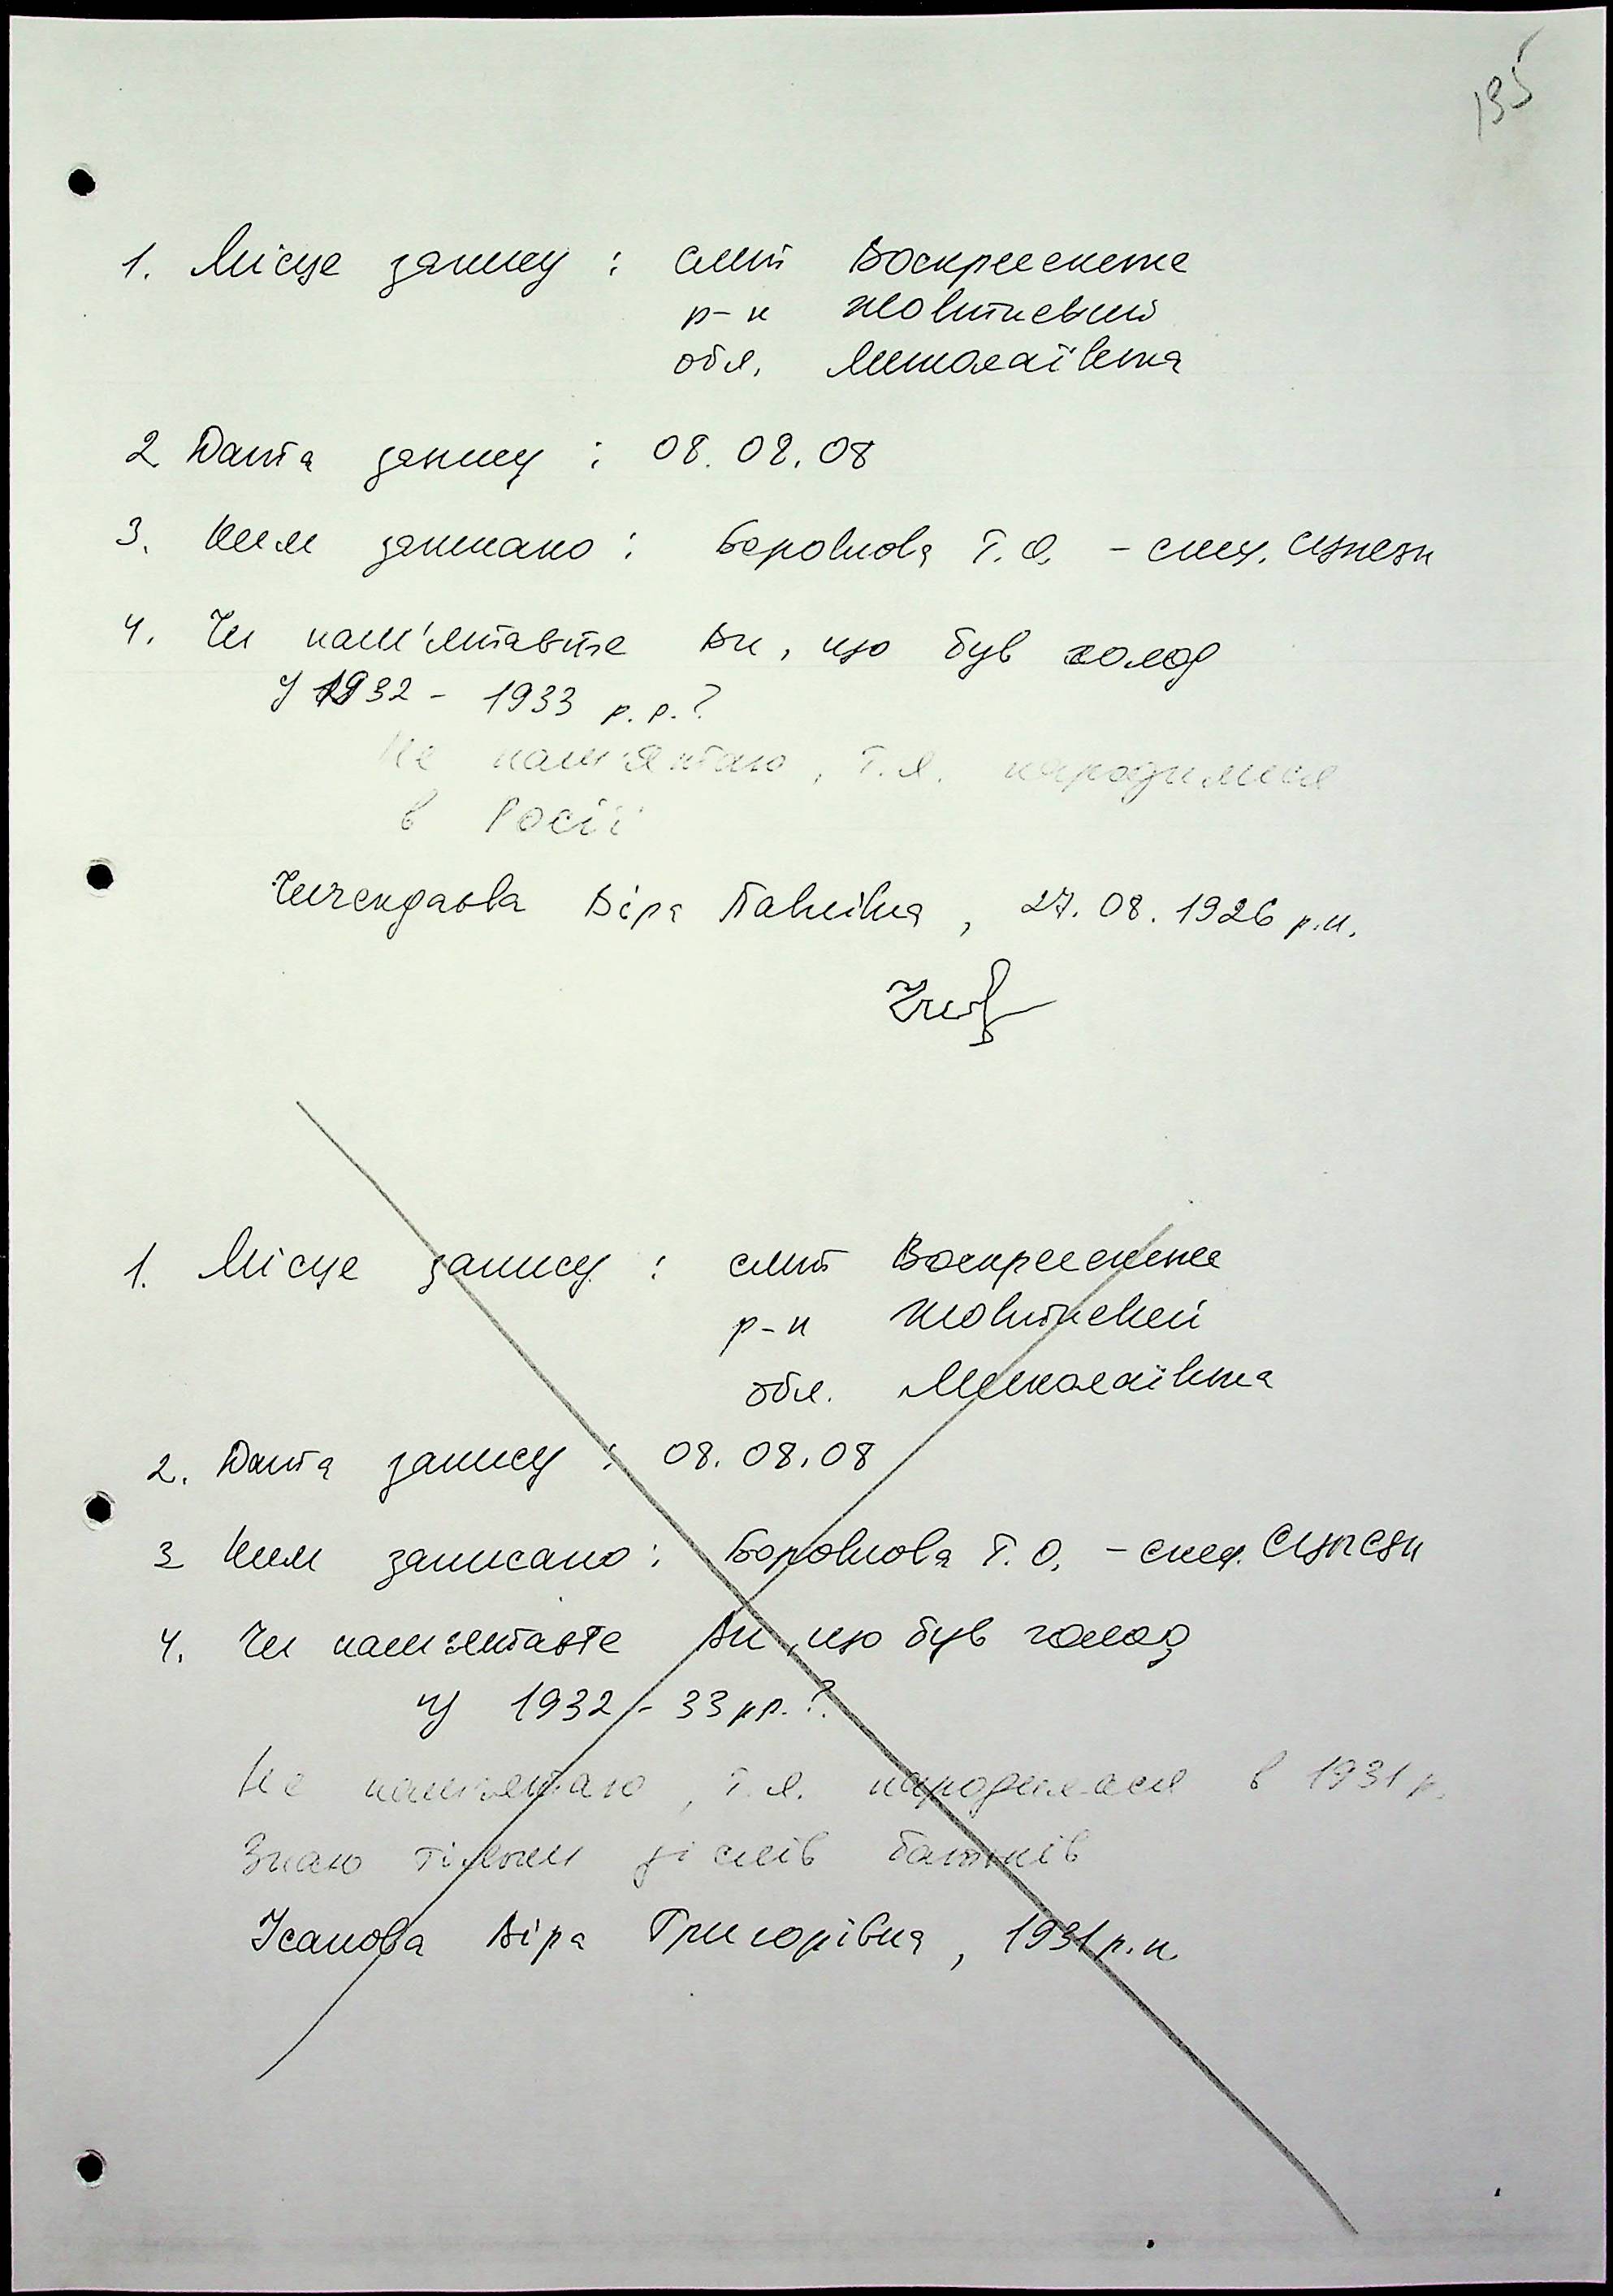 195
1. Місце запису : смт Воскресенське
р-н Жовтневий
обл. Миколаївська
2 Дата запису : 08. 08. 08
3. Ким записано : Боровкова Т. О. – спец.
4. Чи пам'ятаєте Ви, що був голод
у 1932 – 1933 р.р.?
Не пам'ятаю, т.я. народилися
в Росії
Віра Павлівна, 27. 08. 1926 р.н.
1. Місце запису : смт Воскресенське
р-н Жовтневий
обл. Миколаївська
2. Дата запису : 08. 08. 08
3 Ким записано : Боровкова Т. О. – спец.
4. Чи пам'ятаєте Ви, що був голод
у 1932 – 33 рр.?
Не пам'ятаю, т.я. народилася в 1931 р.
Знаю тільки зі слів батьків
Ісанова Віра Григорівна, 1931 р.н.